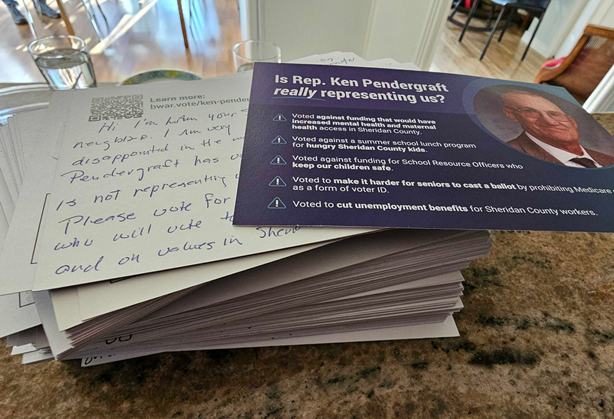 Is Rep. Ken Pendergraft
really representing us?
Voted against funding that would have
increased mental health and maternal
health access in Sheridan County.
Voted against a summer school lunch program
for hungry Sheridan County kids.
Voted against funding for School Resource Officers who
keep our children safe.
Voted to make it harder for seniors to cast a ballot by prohibiting Medicare
as a form of voter ID.
Voted to cut unemployment benefits for Sheridan County workers.
Learn more:
bwar.vote/ken-pende
Hi I'm your
neighbor. I am very
disappointed in the
Pendergraft has
is not representing
Please vote for
who will vote
and on values in